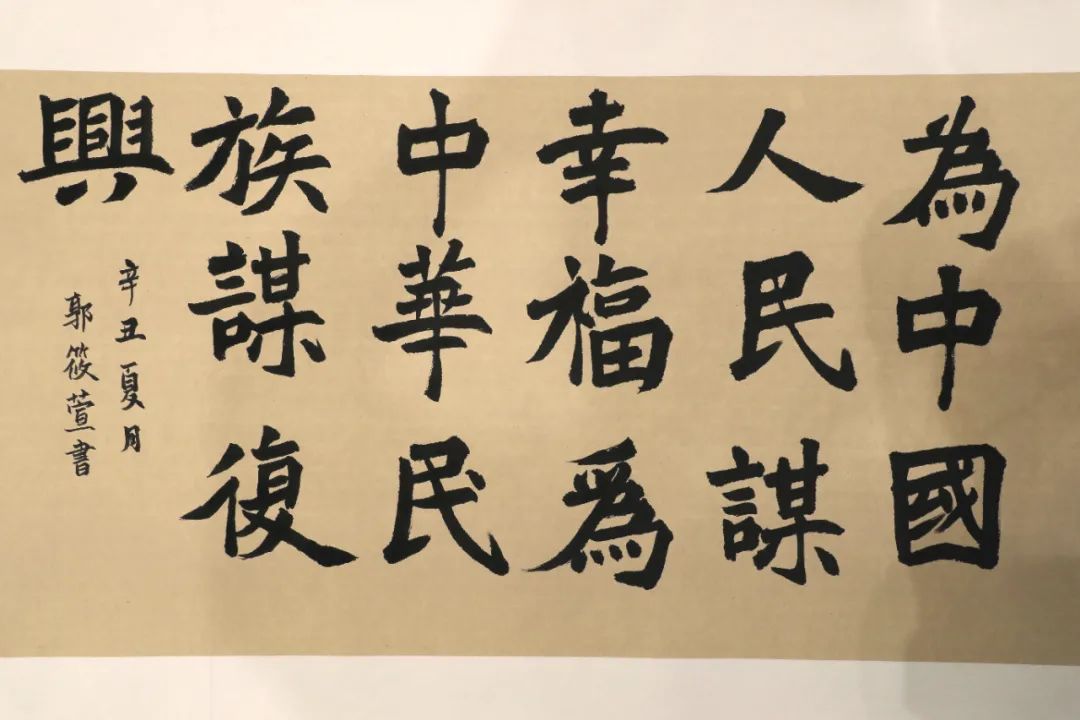 為中國
人民謀
幸福爲
中華民
族謀復
興
辛丑夏月
郭筱萱書